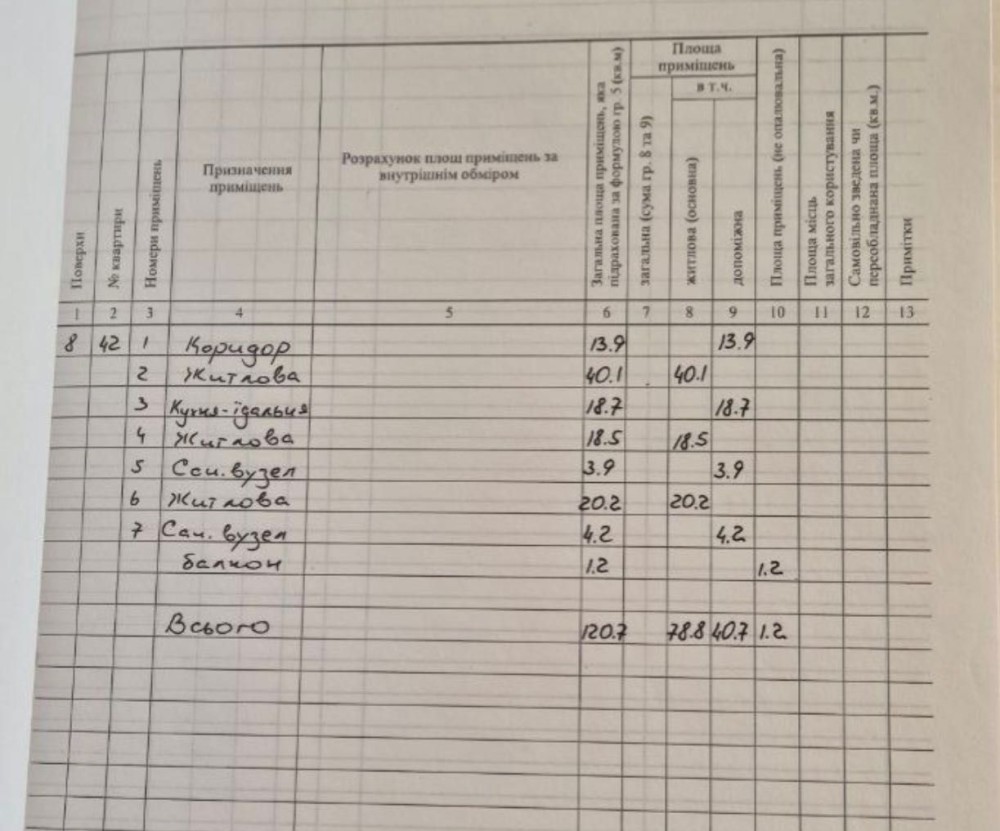 Поверхи
№ квартири
Номери приміщень
Призначення приміщень
Розрахунок площ приміщень за внутрішнім обміром
Загальна площа приміщень, яка підрахована за формулою гр. 5 (кв.м)
Площа приміщень
в т.ч.
загальна (сума гр. 8 та 9)
житлова (основна)
допоміжна
Площа приміщень (не опалювальна)
Площа місць загального користування
Самовільно зведена чи переобладнана площа (кв.м.)
Примітки
1 2 3 4 5 6 7 8 9 10 11 12 13
8 42 1 Коридор 13.9 13.9
2 Житлова 40.1 40.1
3 Кухня-їдальня 18.7 18.7
4 Житлова 18.5 18.5
5 Сан.вузел 3.9 3.9
6 Житлова 20.2 20.2
7 Сан. вузел 4.2 4.2
балкон 1.2 1.2
Всього 120.7 78.8 40.7 1.2